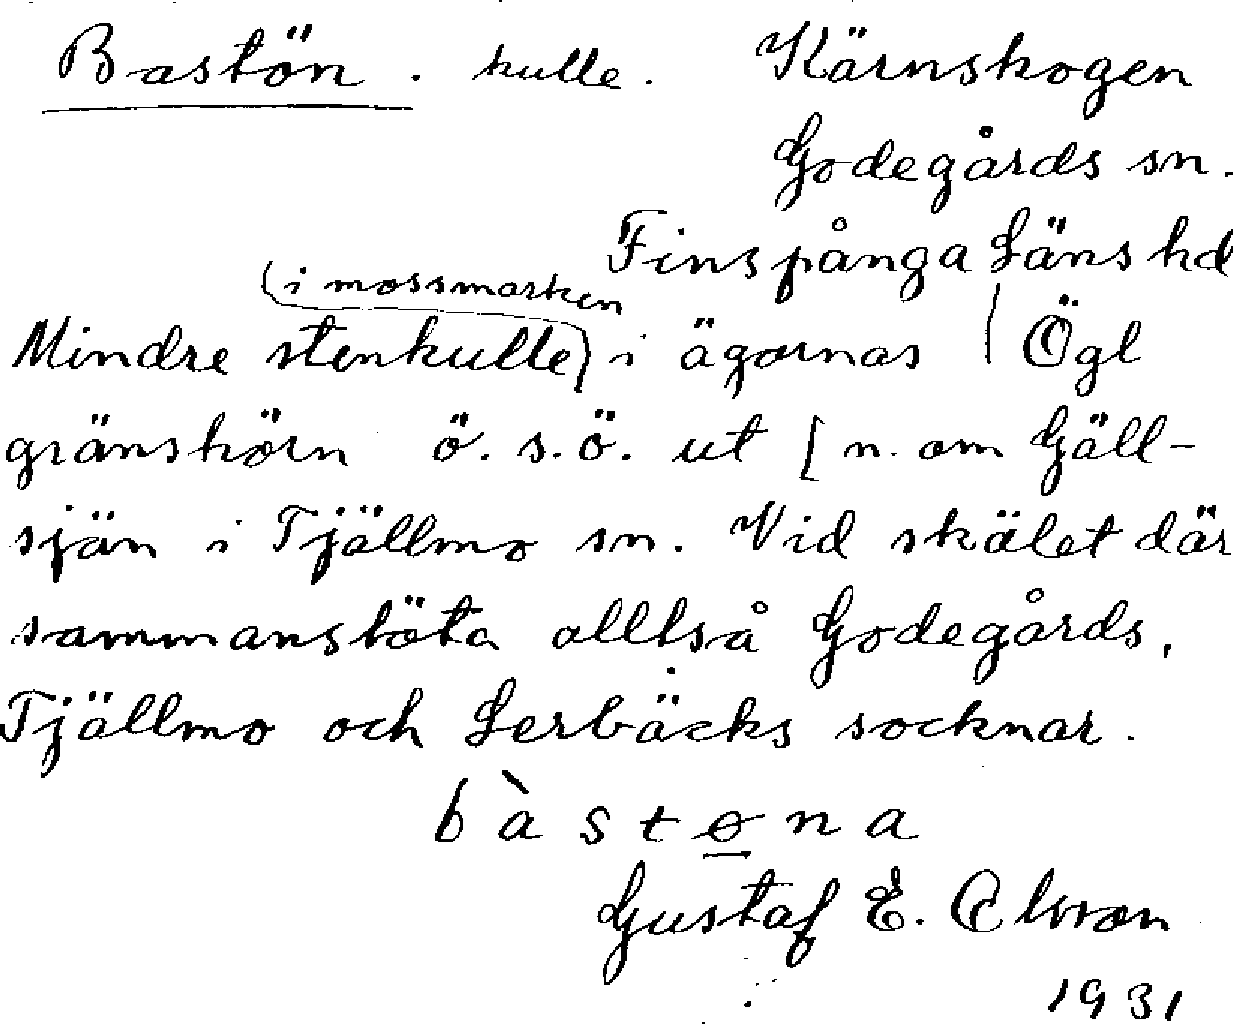 Bastön. kulle. Kärnskogen
Godegårds sn.
Finspånga Läns hd
(i mossmarken
Mindre stenkulle) i ägornas | Ögl
gränshörn ö. s. ö. ut [ n. om Gäll-
sjän i Tjällmo sn. Vid skälet där
sammanstöta alltså Godegårds,
Tjällmo och Lerbäcks socknar.
bàstɵna
Gustaf E.
1931